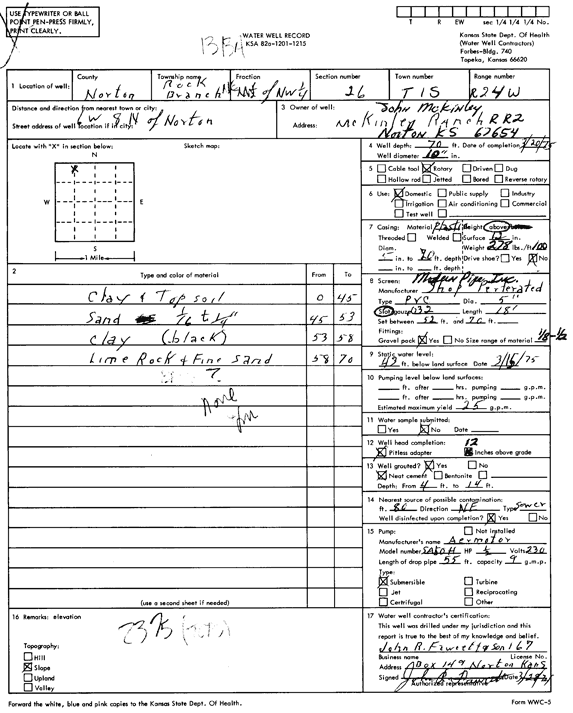 USE TYPEWRITER OR BALL
POINT PEN-PRESS FIRMLY,
PRINT CLEARLY.
WATER WELL RECORD
KSA 82a-1201-1215
T R EW sec 1/4 1/4 1/4 No.
Kansas State Dept. Of Health
(Water Well Contractors)
Forbes-Bldg. 740
Topeka, Kansas 66620
1 Location of well: County Norton Township name Rock Branch Fraction of NW¼ Section number 26 Town number T1S Range number R24W
Distance and direction from nearest town or city: 6W 8N of Norton
Street address of well location if in city:
3 Owner of well: John McKinley
Address: McKinley Ranch RR2
Norton KS 67654
Locate with "X" in section below: Sketch map:
N
X
W E
S
1 Mile
4 Well depth: 70 ft. Date of completion 3/20/75
Well diameter 10" in.
5 Cable tool X Rotary Driven Dug
Hollow rod Jetted Bored Reverse rotary
6 Use: X Domestic Public supply Industry
Irrigation Air conditioning Commercial
Test well
7 Casing: Material Plastic Height above
Threaded Welded Surface 12 in.
Diam. Weight 278 lbs./ft/100
5 in. to 70 ft. depth Drive shoe? Yes X No
in. to ft. depth
2 Type and color of material From To
Clay & Top soil 0 45
Sand 1/16 to 1/4" 45 53
Clay (black) 53 58
Lime Rock & Fine Sand 58 70
?
8 Screen: Modern Pipe, Inc.
Manufacturer Shop Perforated
Type PVC Dia. 5"
Slot gauze .032 Length 18'
Set between 52 ft. and 70 ft.
Fittings:
Gravel pack X Yes No Size range of material 1/8-1/2
9 Static water level:
49 ft. below land surface Date 3/15/75
10 Pumping level below land surfaces:
ft. after hrs. pumping g.p.m.
ft. after hrs. pumping g.p.m.
Estimated maximum yield 25 g.p.m.
11 Water sample submitted:
Yes X No Date
12 Well head completion: 12
X Pitless adapter Inches above grade
13 Well grouted? X Yes No
X Neat cement Bentonite
Depth: From 4 ft. to 14 ft.
14 Nearest source of possible contamination:
ft. 80 Direction NE Type Sower
Well disinfected upon completion? X Yes No
15 Pump: Not installed
Manufacturer's name Aermotor
Model number HP ½ Volts 230
Length of drop pipe 55 ft. capacity 9 g.m.p.
Type:
X Submersible Turbine
Jet Reciprocating
Certrifugal Other
(use a second sheet if needed)
16 Remarks: elevation
2375
Topography:
Hill
X Slope
Upland
Valley
17 Water well contractor's certification:
This well was drilled under my jurisdiction and this
report is true to the best of my knowledge and belief.
John R. Fawcett & Son 167
Business name License No.
Address Box 149 Norton Kans
Signed Date
Authorized representative
Forward the white, blue and pink copies to the Kansas State Dept. Of Health.
Form WWC-5